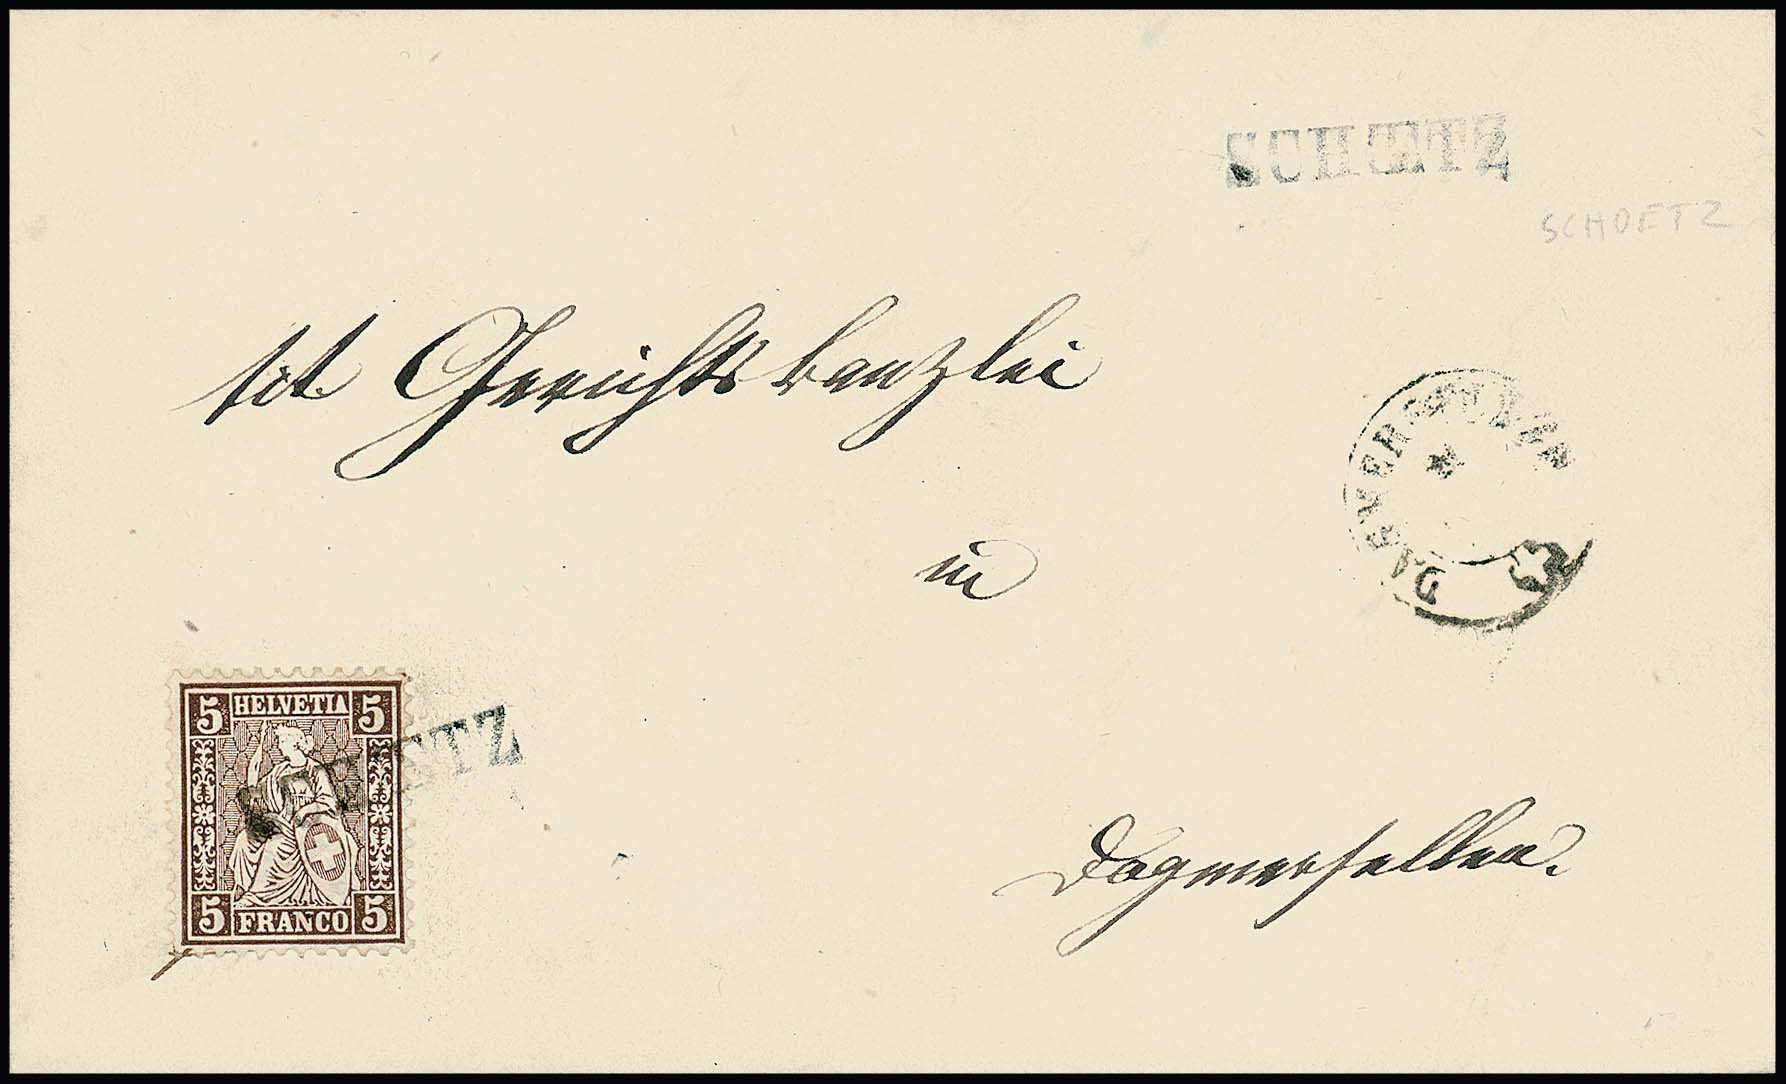 SCHŒTZ
SCHOETZ
tit. Gerichtskanzlei
in
Dagmersellen.
DAGMERSELLEN
5 HELVETIA 5
SCHŒTZ
5 FRANCO 5